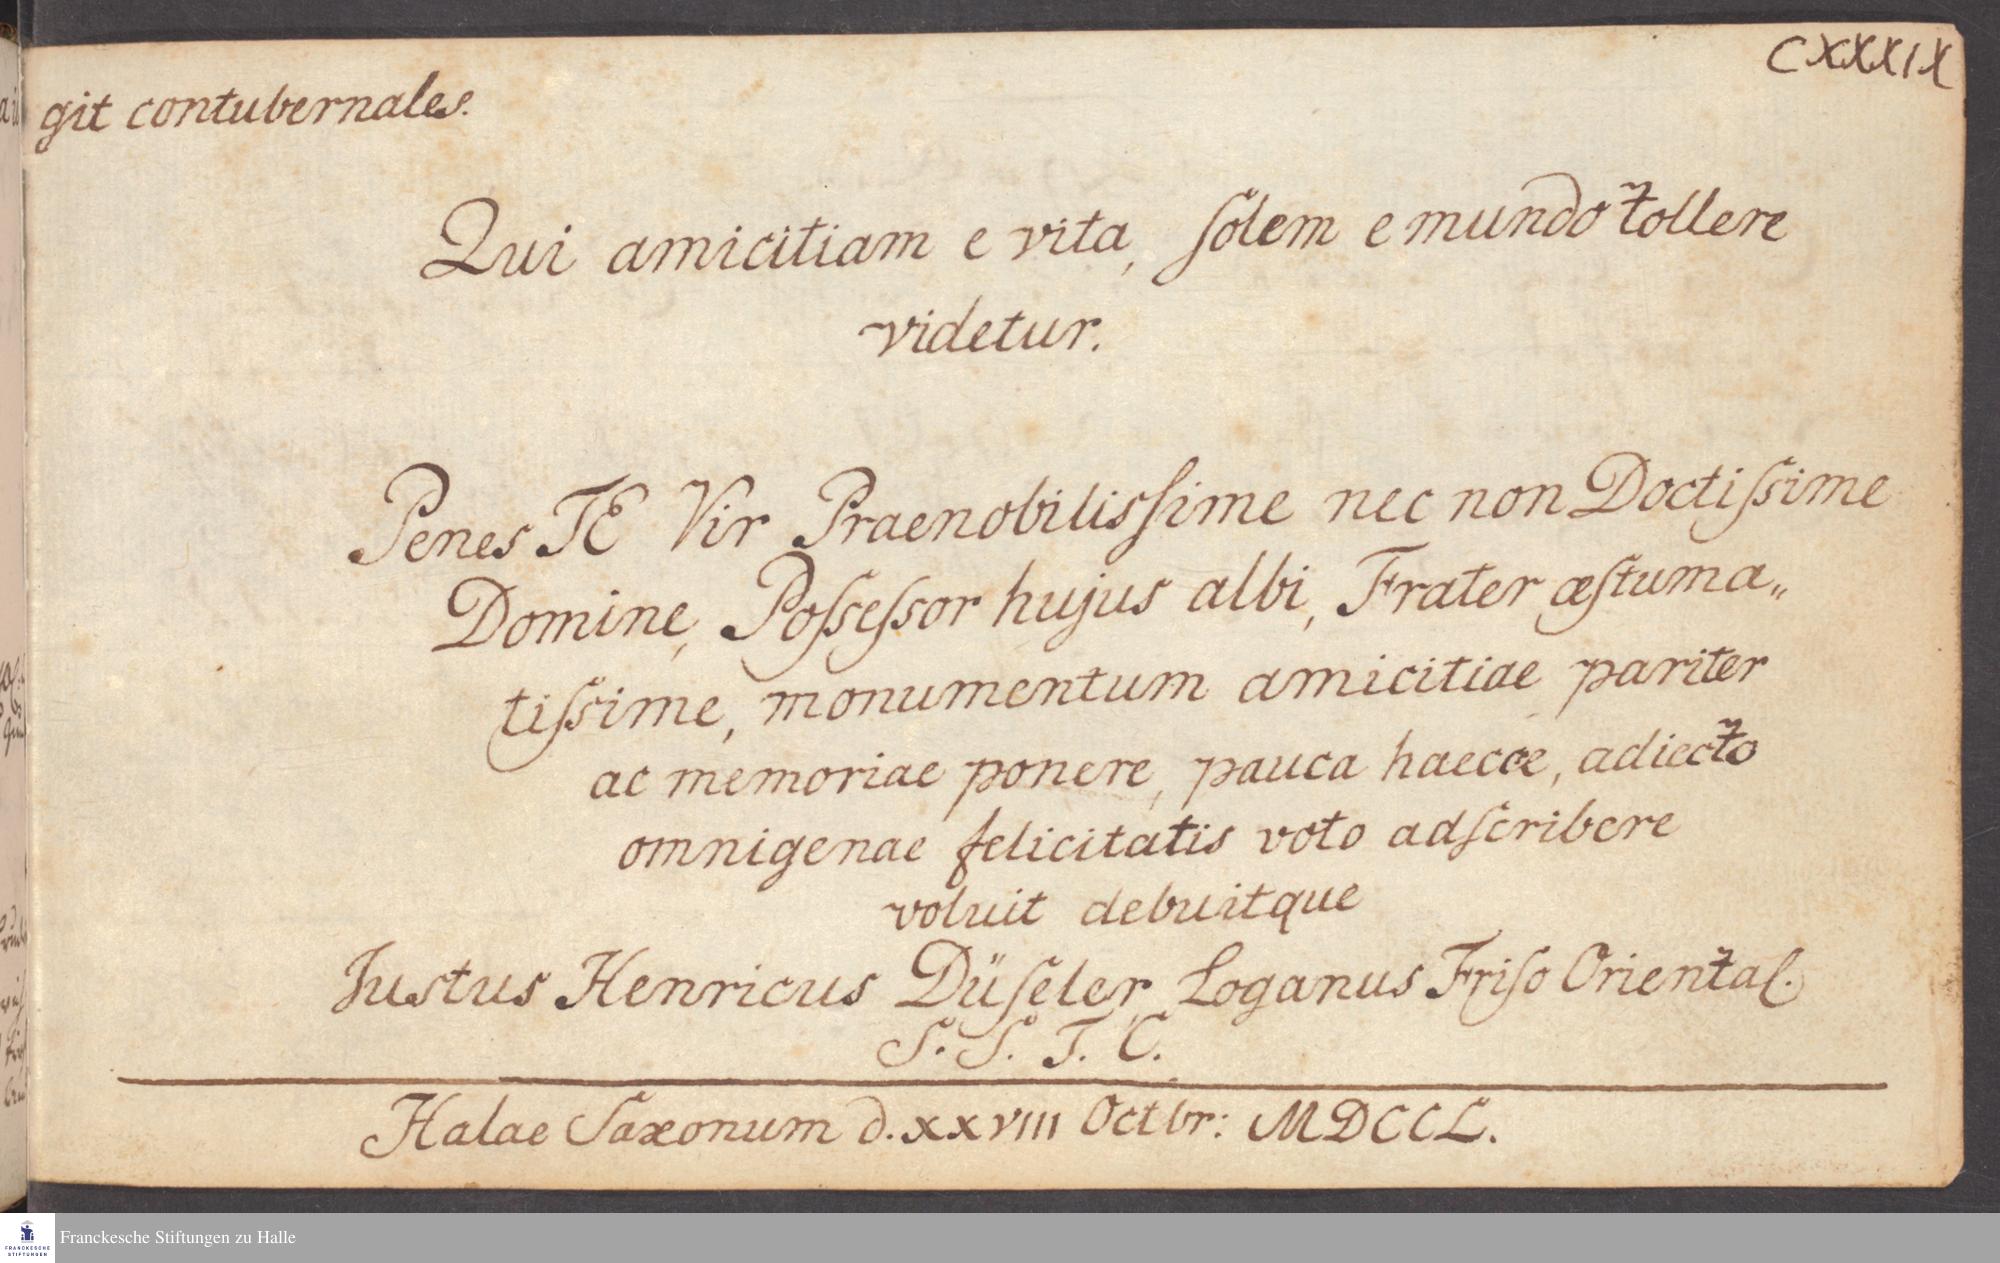 CXXXIX
git contubernales.
Qui amicitiam e vita, solem e mundo tollere
videtur.
Penes TE Vir Praenobilissime nec non Doctissime
Domine, Possessor hujus albi, Frater æstuma„
tissime, monumentum amicitiae pariter
ac memoriae ponere, pauca haecce, adiecto
omnigenae felicitatis voto adscribere
voluit debuitque
Justus Henricus Düseler, Loganus Friso Oriental.
S. S. T. C.
Halae Saxonum d. XXVIII Octbr: MDCCL.
Franckesche Stiftungen zu Halle
FRANCKESCHE
STIFTUNGEN